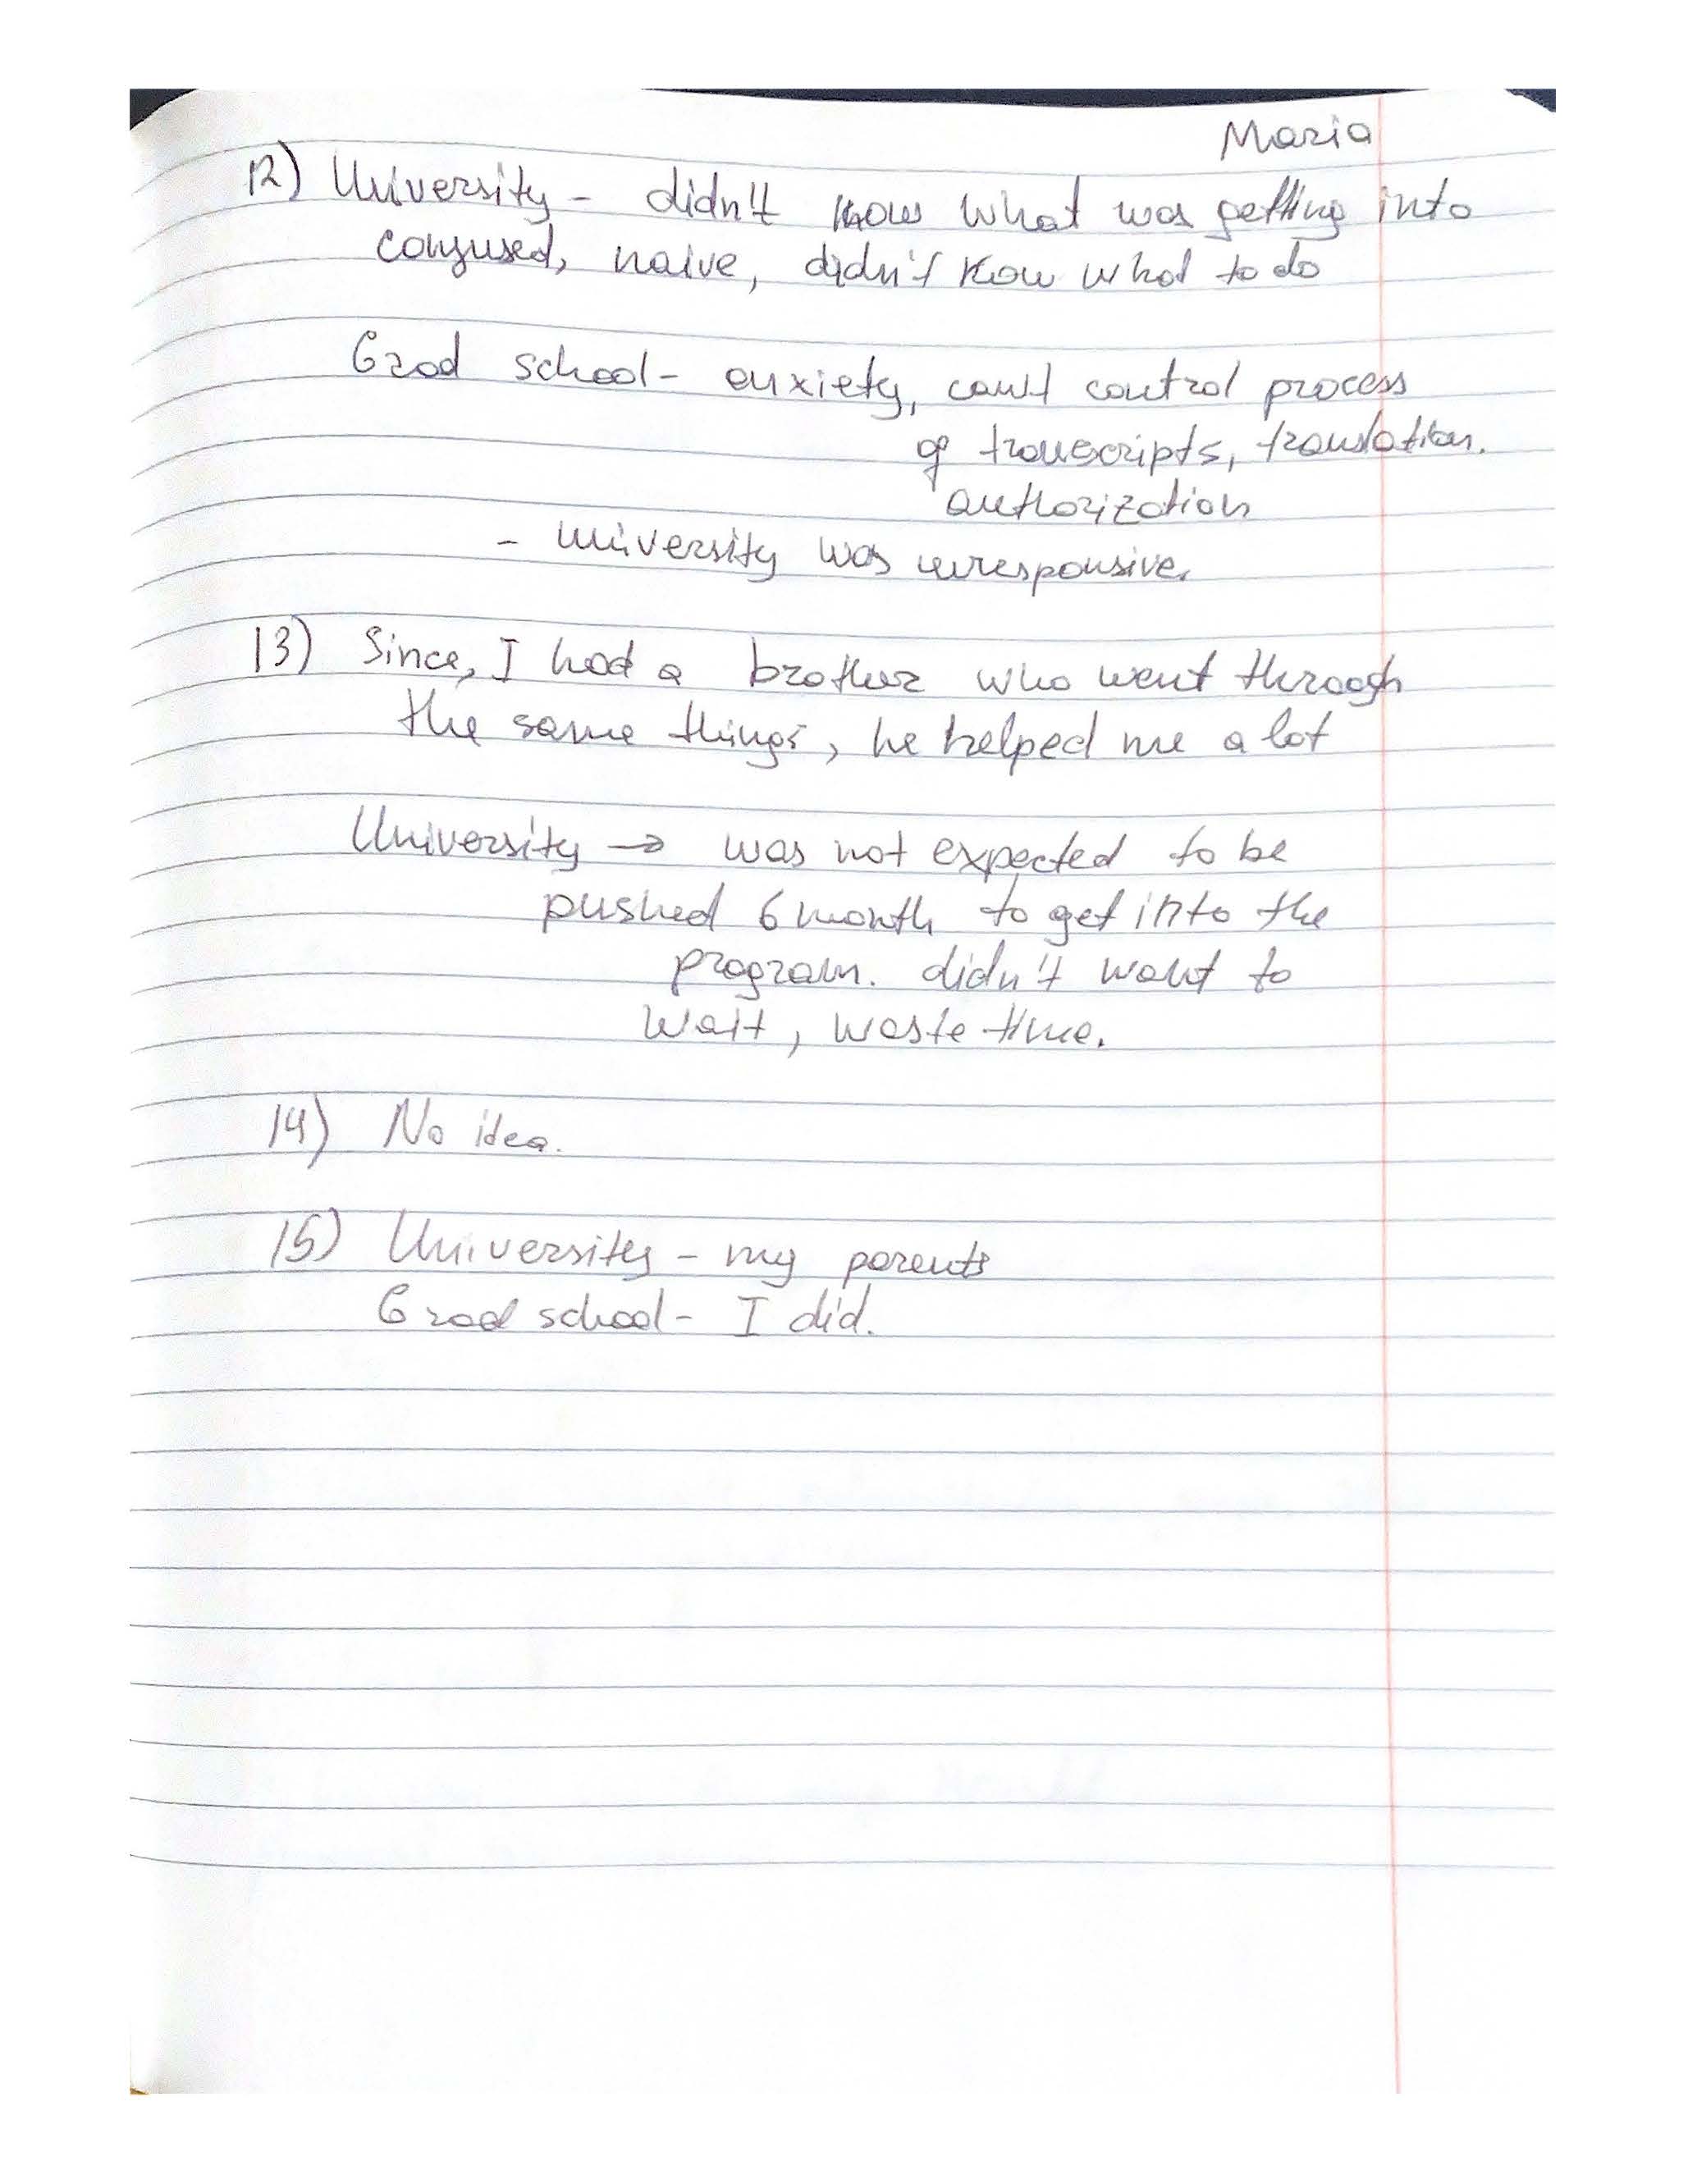 Maria
12) University - didn't know what was getting into
confused, naive, didn't know what to do
Grad school - anxiety, can't control process
of transcripts, translation.
authorization
- university was unresponsive.
13) Since, I had a brother who went through
the same things, he helped me a lot
University → was not expected to be
pushed 6 month to get into the
program. didn't want to
wait, waste time.
14) No idea.
15) University - my parents
Grad school - I did.